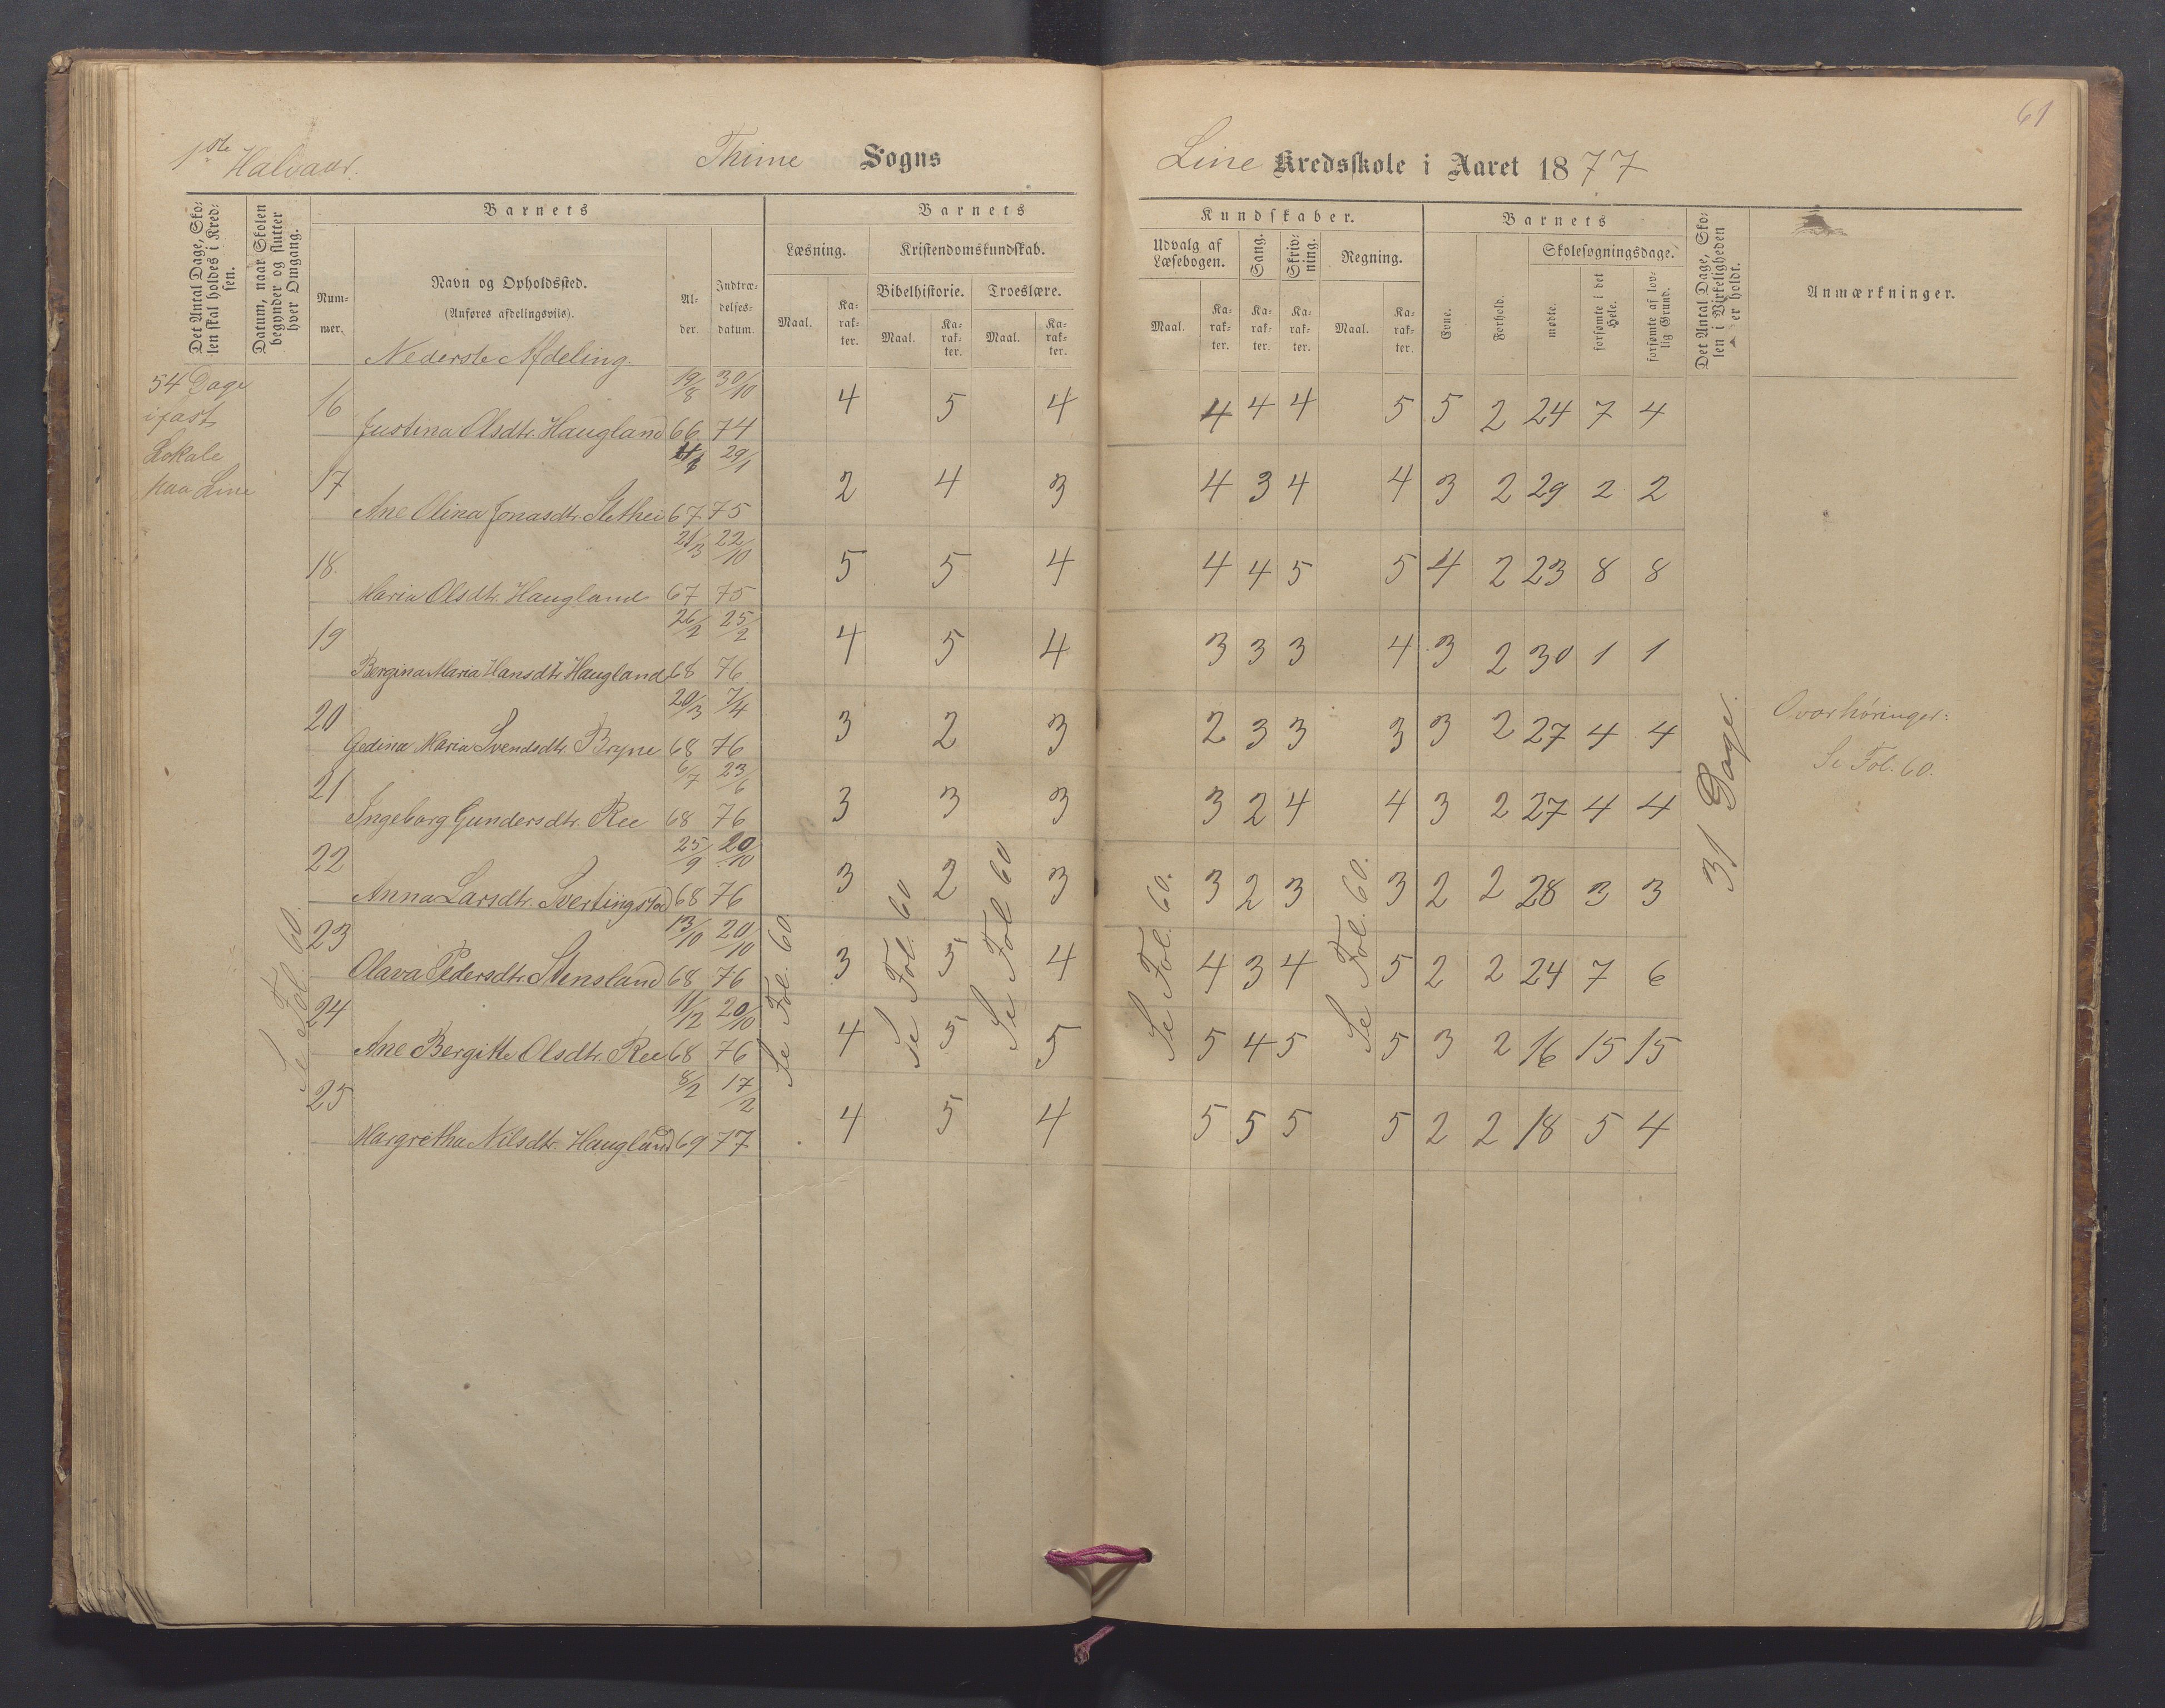 61
1ste Halvaar.
Thime Sogns
Line Kredsskole i Aaret 1877
Det Antal Dage, Skolen skal holdes i Kredsen.
Datum, naar Skolen begynder og slutter hver Omgang.
Barnets
Nummer.
Navn og Opholdssted.
(Anføres afdelingsviis).
Nederste Afdeling.
Alder.
Indtrædelsesdatum.
Barnets
Læsning.
Kristendomskundskab.
Bibelhistorie.
Troeslære.
Maal.
Karakter.
Maal.
Karakter.
Maal.
Karakter.
Kundskaber.
Udvalg af Læsebogen.
Sang.
Skrivning.
Regning.
Maal.
Karakter.
Karakter.
Karakter.
Maal.
Karakter.
Barnets
Evne.
Forhold.
Skolesøgningsdage.
mødte.
forsømte i det Hele.
forsømte af lovlig Grund.
Det Antal Dage, Skolen i Virkeligheden er holdt.
Anmærkninger.
54 Dage
i fast
Lokale
paa Line
16 Justina Olsdtr. Haugland 19/8 66 30/10 74 4 5 4 4 4 4 5 5 2 24 7 4
17 Ane Olina Jonasdtr. Slethei 67 29/1 75 2 4 3 4 3 4 4 3 2 29 2 2
18. Maria Olsdtr. Haugland 21/3 67 22/10 75 5 5 4 4 4 5 5 4 2 23 8 8
19 Bergina Maria Hansdtr Haugland 26/2 68 25/2 76 4 5 4 3 3 3 4 3 2 30 1 1
20 Gedina Maria Svendsdtr. Bryne 20/3 68 7/4 76 3 2 3 2 3 3 3 3 2 27 4 4
21 Ingeborg Gundersdtr. Ree 6/7 68 23/6 76 3 3 3 3 2 4 4 3 2 27 4 4
22 Anna Larsdtr. Svertingstad 25/9 68 20/10 76 3 2 3 3 2 3 3 2 2 28 3 3
23 Olava Pedersdtr. Stensland 13/10 68 20/10 76 3 5 4 4 3 4 5 2 2 24 7 6
24 Ane Bergitte Olsdtr. Ree 11/12 68 20/10 76 4 5 5 5 4 5 5 3 2 16 15 15
25 Margretha Nilsdtr. Haugland 8/2 69 17/2 77 4 5 4 5 5 5 5 2 2 18 5 4
Se Fol. 60.
Se Fol. 60.
Se Fol. 60
Se Fol 60
Se Fol. 60.
Se Fol. 60.
31 Dage.
Overhøringer:
Se Fol. 60.